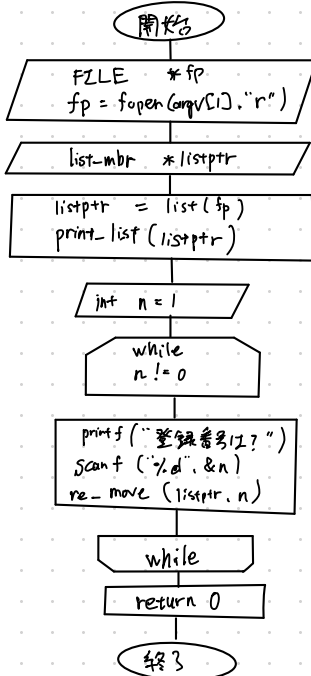 開始
FILE *fp
fp = fopen(argv[1], "r")
list_mbr *listptr
listptr = list(fp)
print_list(listptr)
int n = 1
while
n != 0
printf("登録番号は?")
scanf("%d", &n)
re_move(listptr, n)
while
return 0
終了